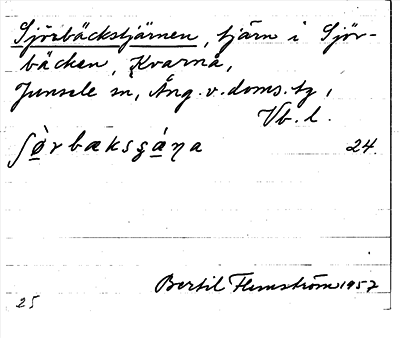 Sjörbäckstjärnen, tjärn i Sjör-
bäcken, Kvarnå,
Junsele sn, Ång. v. doms. tg,
Vb. l.
ʃờrbæksgáŋa 24.
Bertil Flemström 1957
25